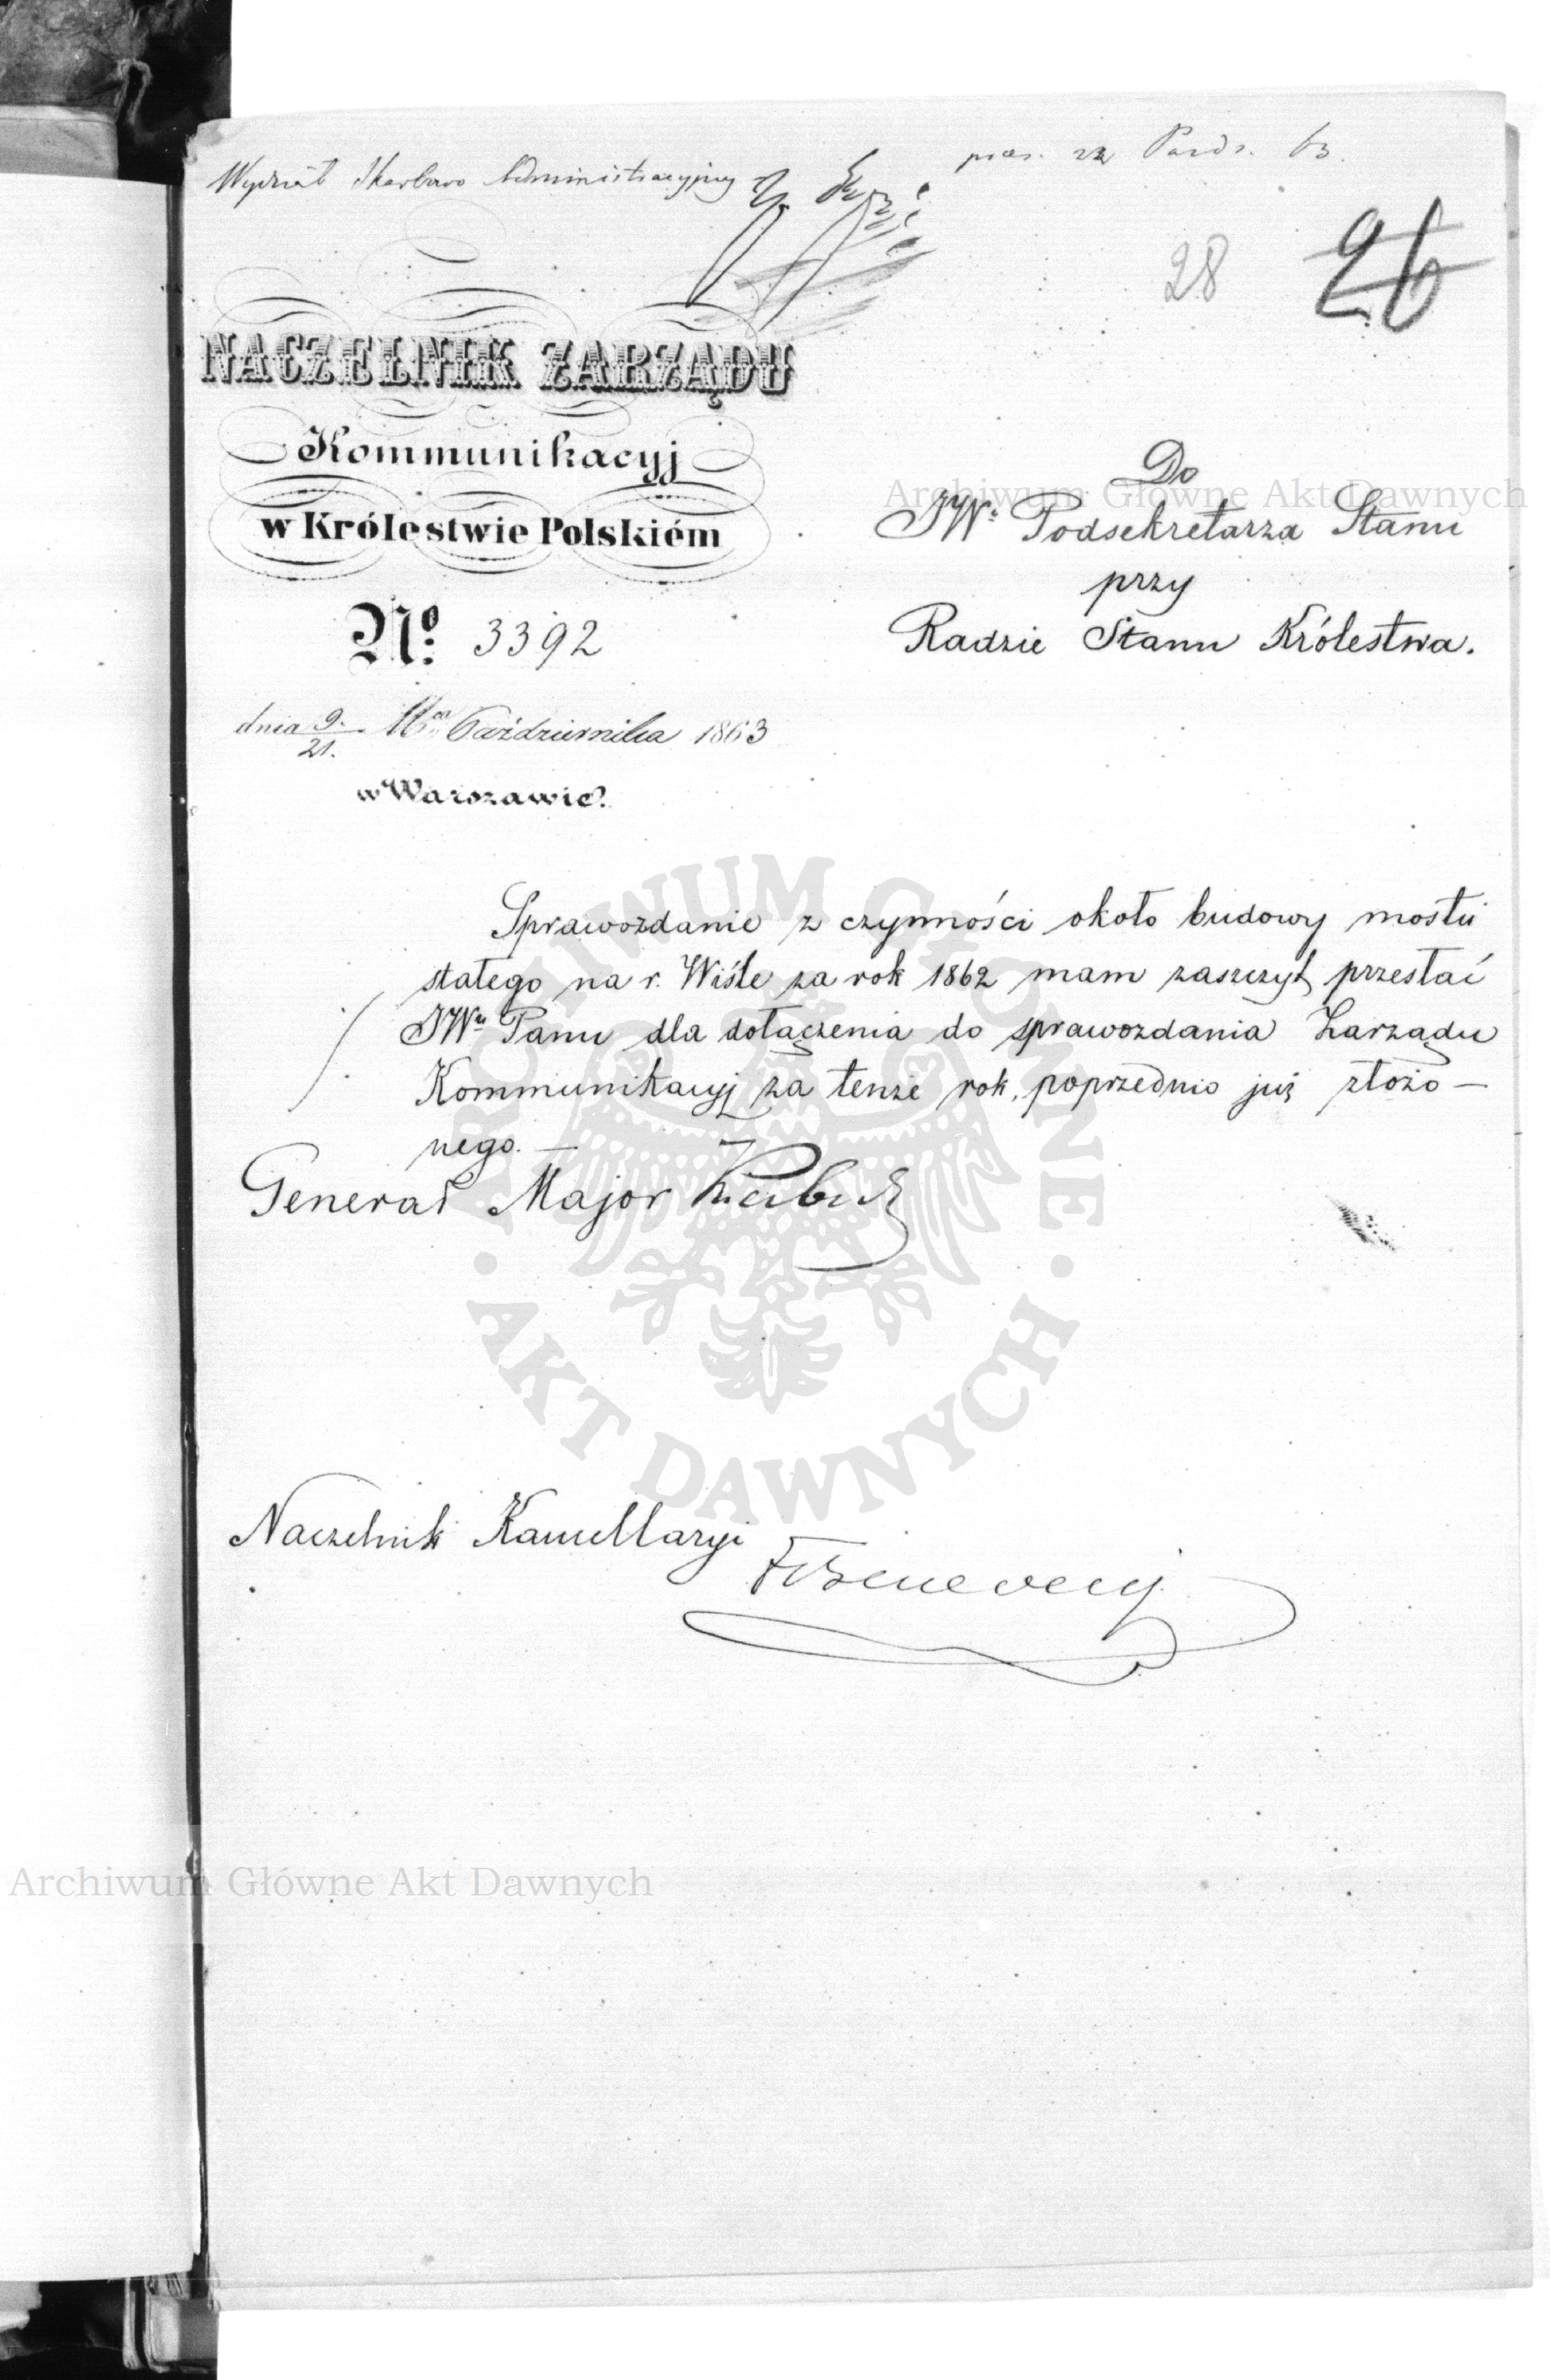 Wydział Skarbowo Administracyjny
prez. 22 Paźdz. 63.
28 26
NACZELNIK ZARZĄDU
Kommunikacyj
w Królestwie Polskiém
№ 3392
dnia 9/21. Października 1863
w Warszawie.
Do
JWo Podsekretarza Stanu
przy
Radzie Stanu Królestwa.
Sprawozdanie z czynności około budowy mostu
stałego na r. Wiśle za rok 1862 mam zaszczyt przesłać
JWu Panu dla dołączenia do sprawozdania Zarządu
Kommunikacyj za tenże rok, poprzednio już złożo—
nego.—
Generał Major
Naczelnik Kancellaryi
Archiwum Główne Akt Dawnych
ARCHIWUM GŁÓWNE • AKT DAWNYCH •
Archiwum Główne Akt Dawnych